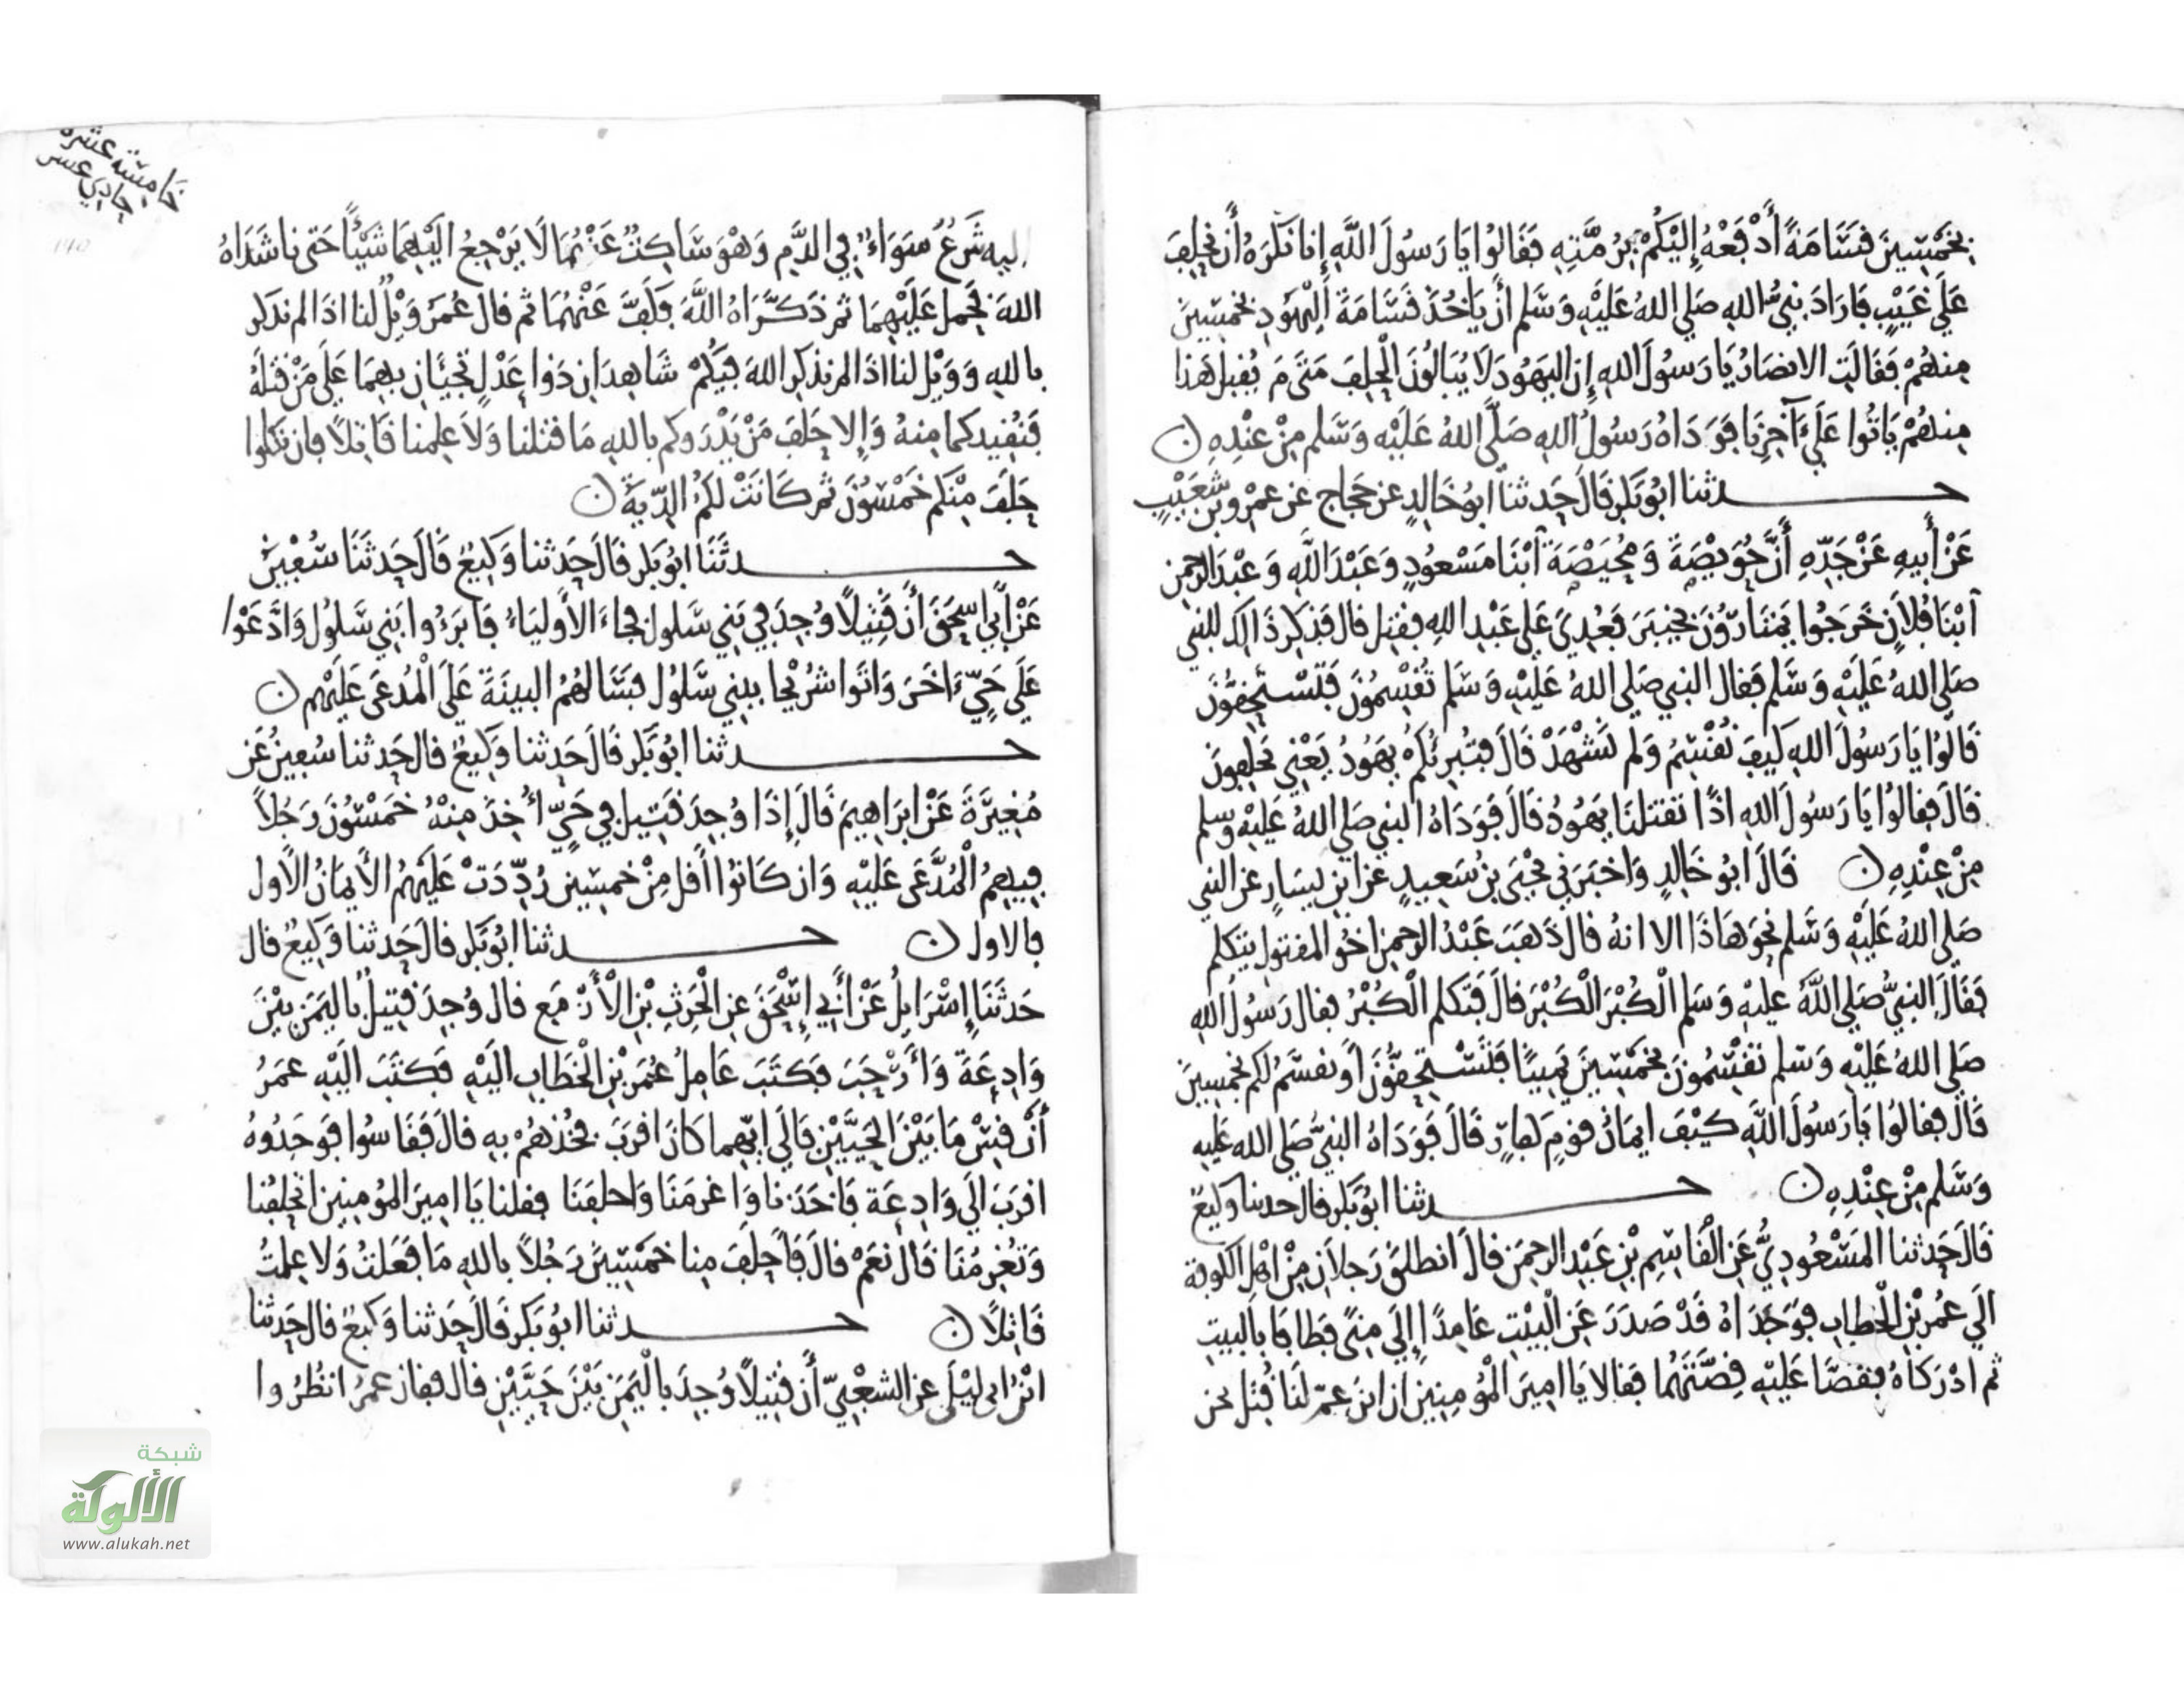 بخمسين قسامة أدفعه إليكم برمته فقالوا يا رسول الله إنا نكره أن نحلف
علي غيب فاراد نبي الله صلي الله عليه وسلم أن ياخذ قسامة اليهود بخمسين
منهم فقالت الانصار يا رسول الله إن اليهود لا يبالون الحلف متي م نقبل هذا
منهم ياتوا علي ءاخرنا فوداه رسول الله صلى الله عليه وسلم من عنده ن
حدثنا ابو بكر قال حدثنا ابو خالد عن حجاج عن عمرو بن شعيب
عن أبيه عن جده أن حويصة ومحيصة ابنا مسعود وعبد الله وعبد الرحمن
ابنا فلان خرجوا يمتارون بخيبر فعدي على عبد الله فقتل قال فذكر ذالك للنبي
صلي الله عليه وسلم فقال النبي صلي الله عليه وسلم تقسمون فتستحقون
قالوا يا رسول الله كيف نقسم ولم نشهد قال فتبرئكم يهود يعني يحلفون
قال فقالوا يا رسول الله اذا تقتلنا يهود قال فوداه النبي صلي الله عليه وسلم
من عنده ن قال ابو خالد واخبرني يحيى بن سعيد عن ابن يسار عن النبي
صلي الله عليه وسلم نحو هاذا الا انه قال ذهب عبد الرحمن اخو المقتول يتكلم
فقال النبي صلي الله عليه وسلم الكبر الكبر قال فتكلم الكبر فقال رسول الله
صلي الله عليه وسلم تقسمون بخمسين يمينا فتستحقون أو نقسم لكم بخمسين
قال فقالوا يا رسول الله كيف ايمان قوم كفار قال فوداه النبي صلي الله عليه
وسلم من عنده ن حدثنا ابو بكر قال حدثنا وكيع
قال حدثنا المسعودي عن القاسم بن عبد الرحمن قال انطلق رجلان من اهل الكوفة
الي عمر بن الخطاب فوجداه قد صدر عن البيت عامدا إلي منى فطافا بالبيت
ثم ادركاه فقصا عليه قصتهما فقالا يا امير المؤمنين ان ابن عم لنا قتل نحن
خامسة عشرة
حادي عشر
اليه شرع سواء في الدم وهو ساكت عنهما لا يرجع اليهما شيئا حتى ناشداه
الله فحمل عليهما ثم ذكراه الله فكف عنهما ثم قال عمر ويل لنا اذا لم نذكر
بالله وويل لنا اذا لم نذكر الله فيكم شاهدان ذوا عدل تجيئان بهما علي من قتله
فنقيدكما منه وإلا حلف من يدروكم بالله ما قتلنا ولا علمنا قاتلا فإن نكلوا
حلف منكم خمسون ثم كانت لكم الدية ن
حدثنا ابو بكر قال حدثنا وكيع قال حدثنا سفين
عن أبي إسحق أن قتيلا وجد في بني سلول فجاء الأولياء فابرءوا بني سلول وادعوا
علي حي ءاخر واتوا شريحا ببني سلول فسالهم البينة على المدعى عليهم ن
حدثنا ابو بكر قال حدثنا وكيع قال حدثنا سفين عن
مغيرة عن ابراهيم قال إذا وجد قتيل في حي أخذ منه خمسون رجلا
فيهم المدعى عليه وان كانوا أقل من خمسين رددت عليهم الأيمان الأول
فالاول ن حدثنا ابو بكر قال حدثنا وكيع قال
حدثنا إسرايل عن أبي إسحق عن الحرث بن الأزمع قال وجد قتيل باليمن بين
وادعة وأرحب فكتب عامل عمر بن الخطاب اليه فكتب اليه عمر
أن قس ما بين الحيين فالي ايهما كان اقرب فخذهم به قال فقاسوا فوجدوه
اقرب الي وادعة فاخذنا واغرمنا واحلفنا فقلنا يا امير المؤمنين اتحلفنا
وتغرمنا قال نعم قال فأحلف منا خمسين رجلا بالله ما فعلت ولا علمت
قاتلا ن حدثنا ابو بكر قال حدثنا وكيع قال حدثنا
ابن ابي ليلى عن الشعبي أن قتيلا وجد باليمن بين حيين قال فقال عمر انظروا
شبكة
الألوكة
www.alukah.net